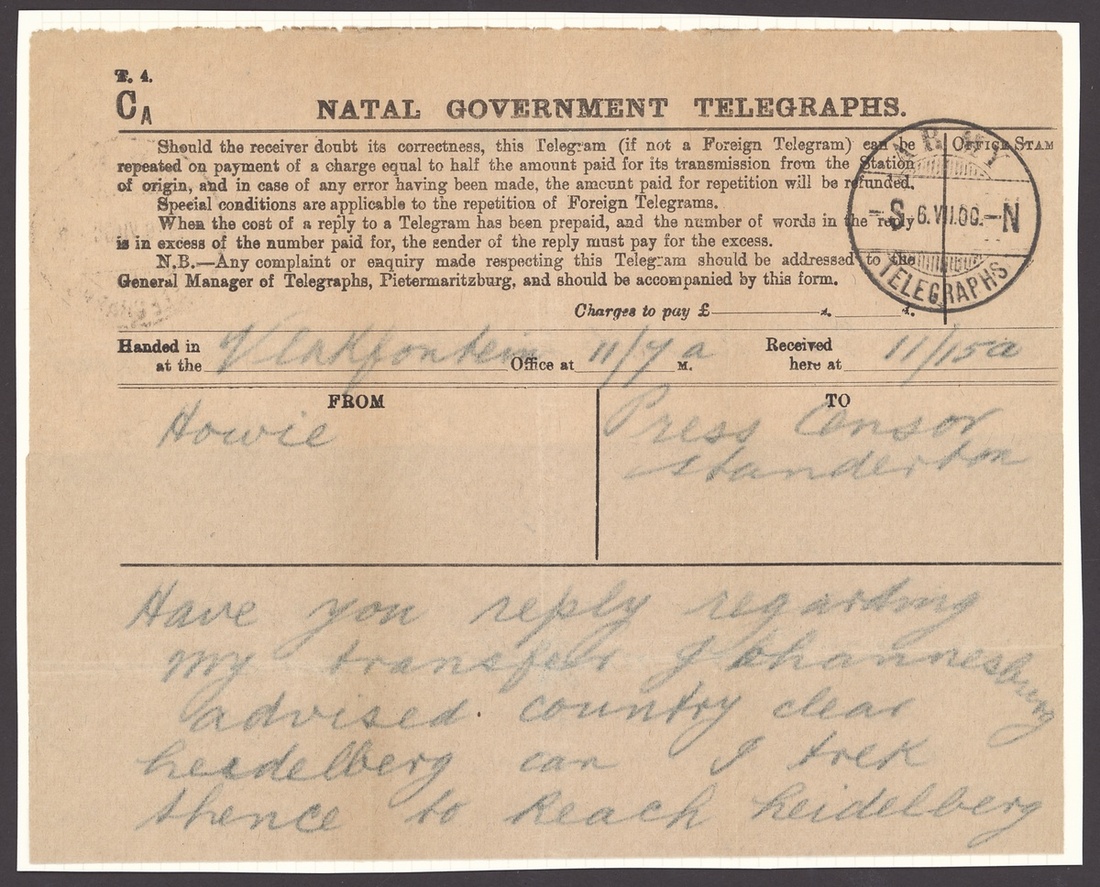 T. 4.
CA
NATAL GOVERNMENT TELEGRAPHS.
Should the receiver doubt its correctness, this Telegram (if not a Foreign Telegram) can be
repeated on payment of a charge equal to half the amount paid for its transmission from the Station
of origin, and in case of any error having been made, the amount paid for repetition will be refunded.
Special conditions are applicable to the repetition of Foreign Telegrams.
When the cost of a reply to a Telegram has been prepaid, and the number of words in the reply
is in excess of the number paid for, the sender of the reply must pay for the excess.
N.B.—Any complaint or enquiry made respecting this Telegram should be addressed to the
General Manager of Telegraphs, Pietermaritzburg, and should be accompanied by this form.
OFFICE STAM
ARMY
S 6.VII.00. N
TELEGRAPHS
Charges to pay £ s. d.
Handed in at the Vlakfontein Office at 11/7 a M. Received here at 11/15a
FROM
Howie
TO
Press Censor
Standerton
Have you reply regarding
my transfer Johannesburg
advised country clear
heidelberg can I trek
thence to Reach heidelberg